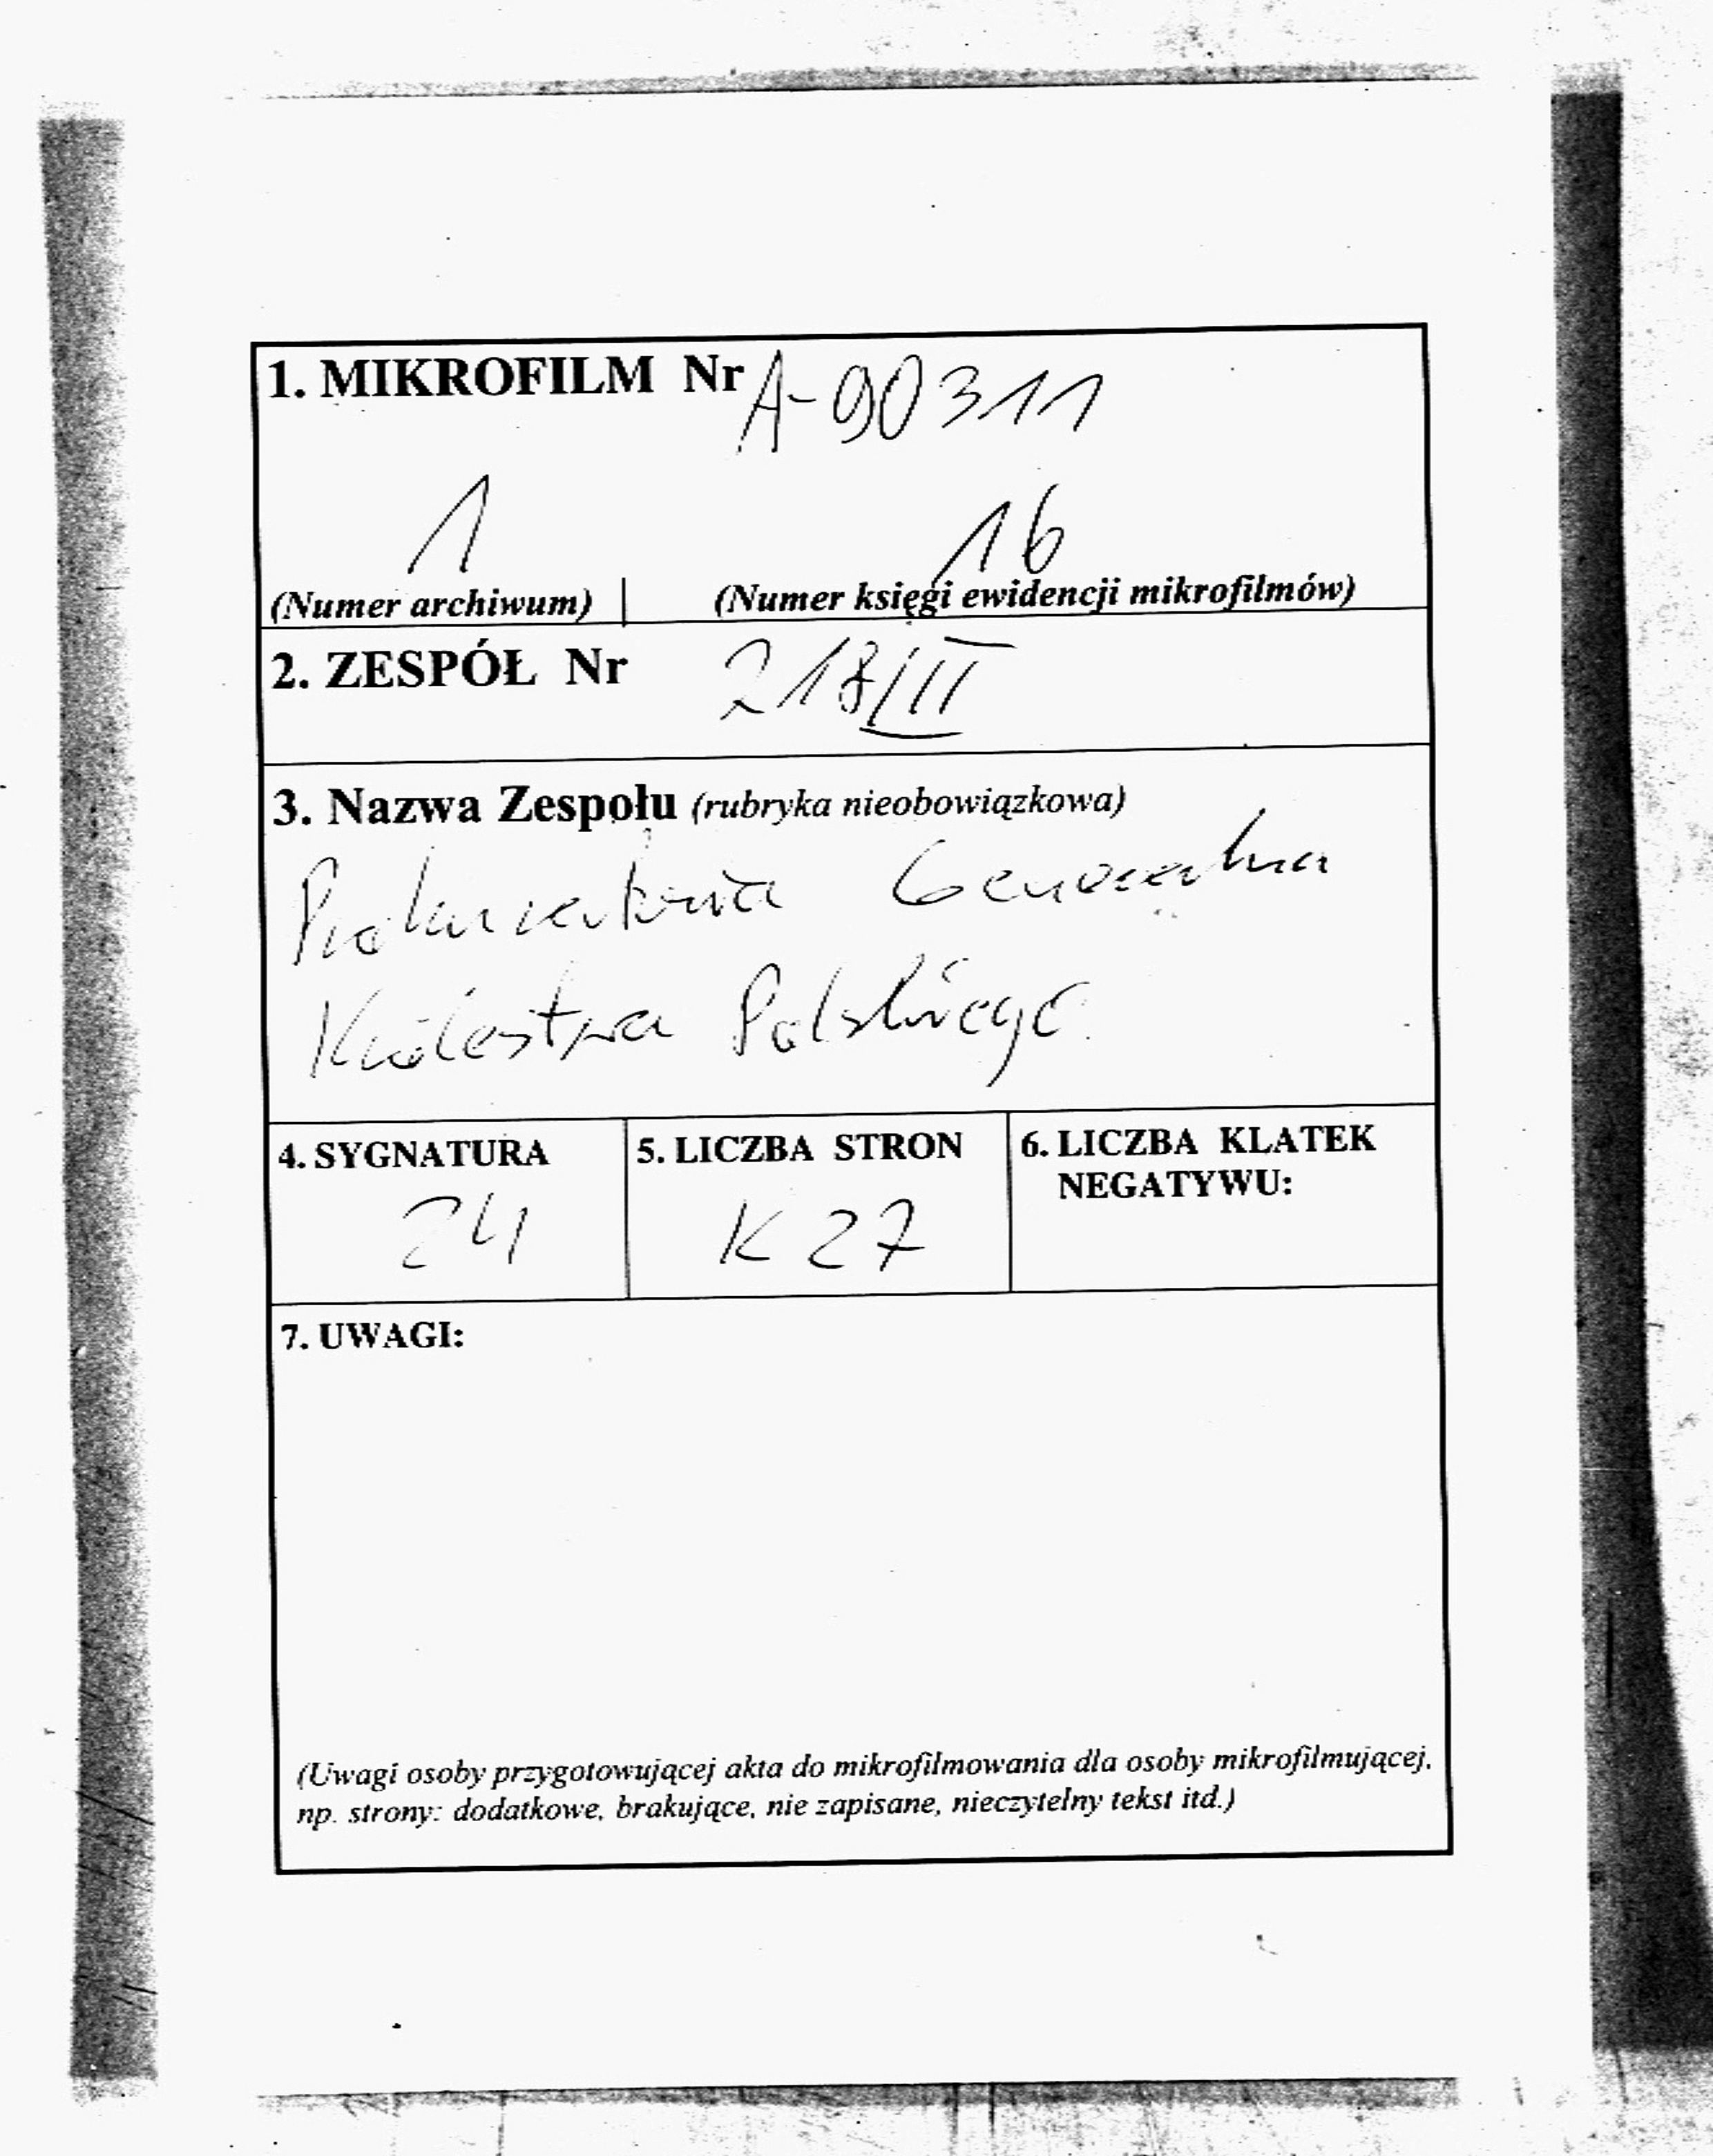 1. MIKROFILM Nr A-90311
1 16
(Numer archiwum) | (Numer księgi ewidencji mikrofilmów)
2. ZESPÓŁ Nr 218/III
3. Nazwa Zespołu (rubryka nieobowiązkowa)
Prokuratoria Generalna
Królestwa Polskiego
4. SYGNATURA 5. LICZBA STRON 6. LICZBA KLATEK
NEGATYWU:
24 K 27
7. UWAGI:
(Uwagi osoby przygotowującej akta do mikrofilmowania dla osoby mikrofilmującej,
np. strony: dodatkowe, brakujące, nie zapisane, nieczytelny tekst itd.)